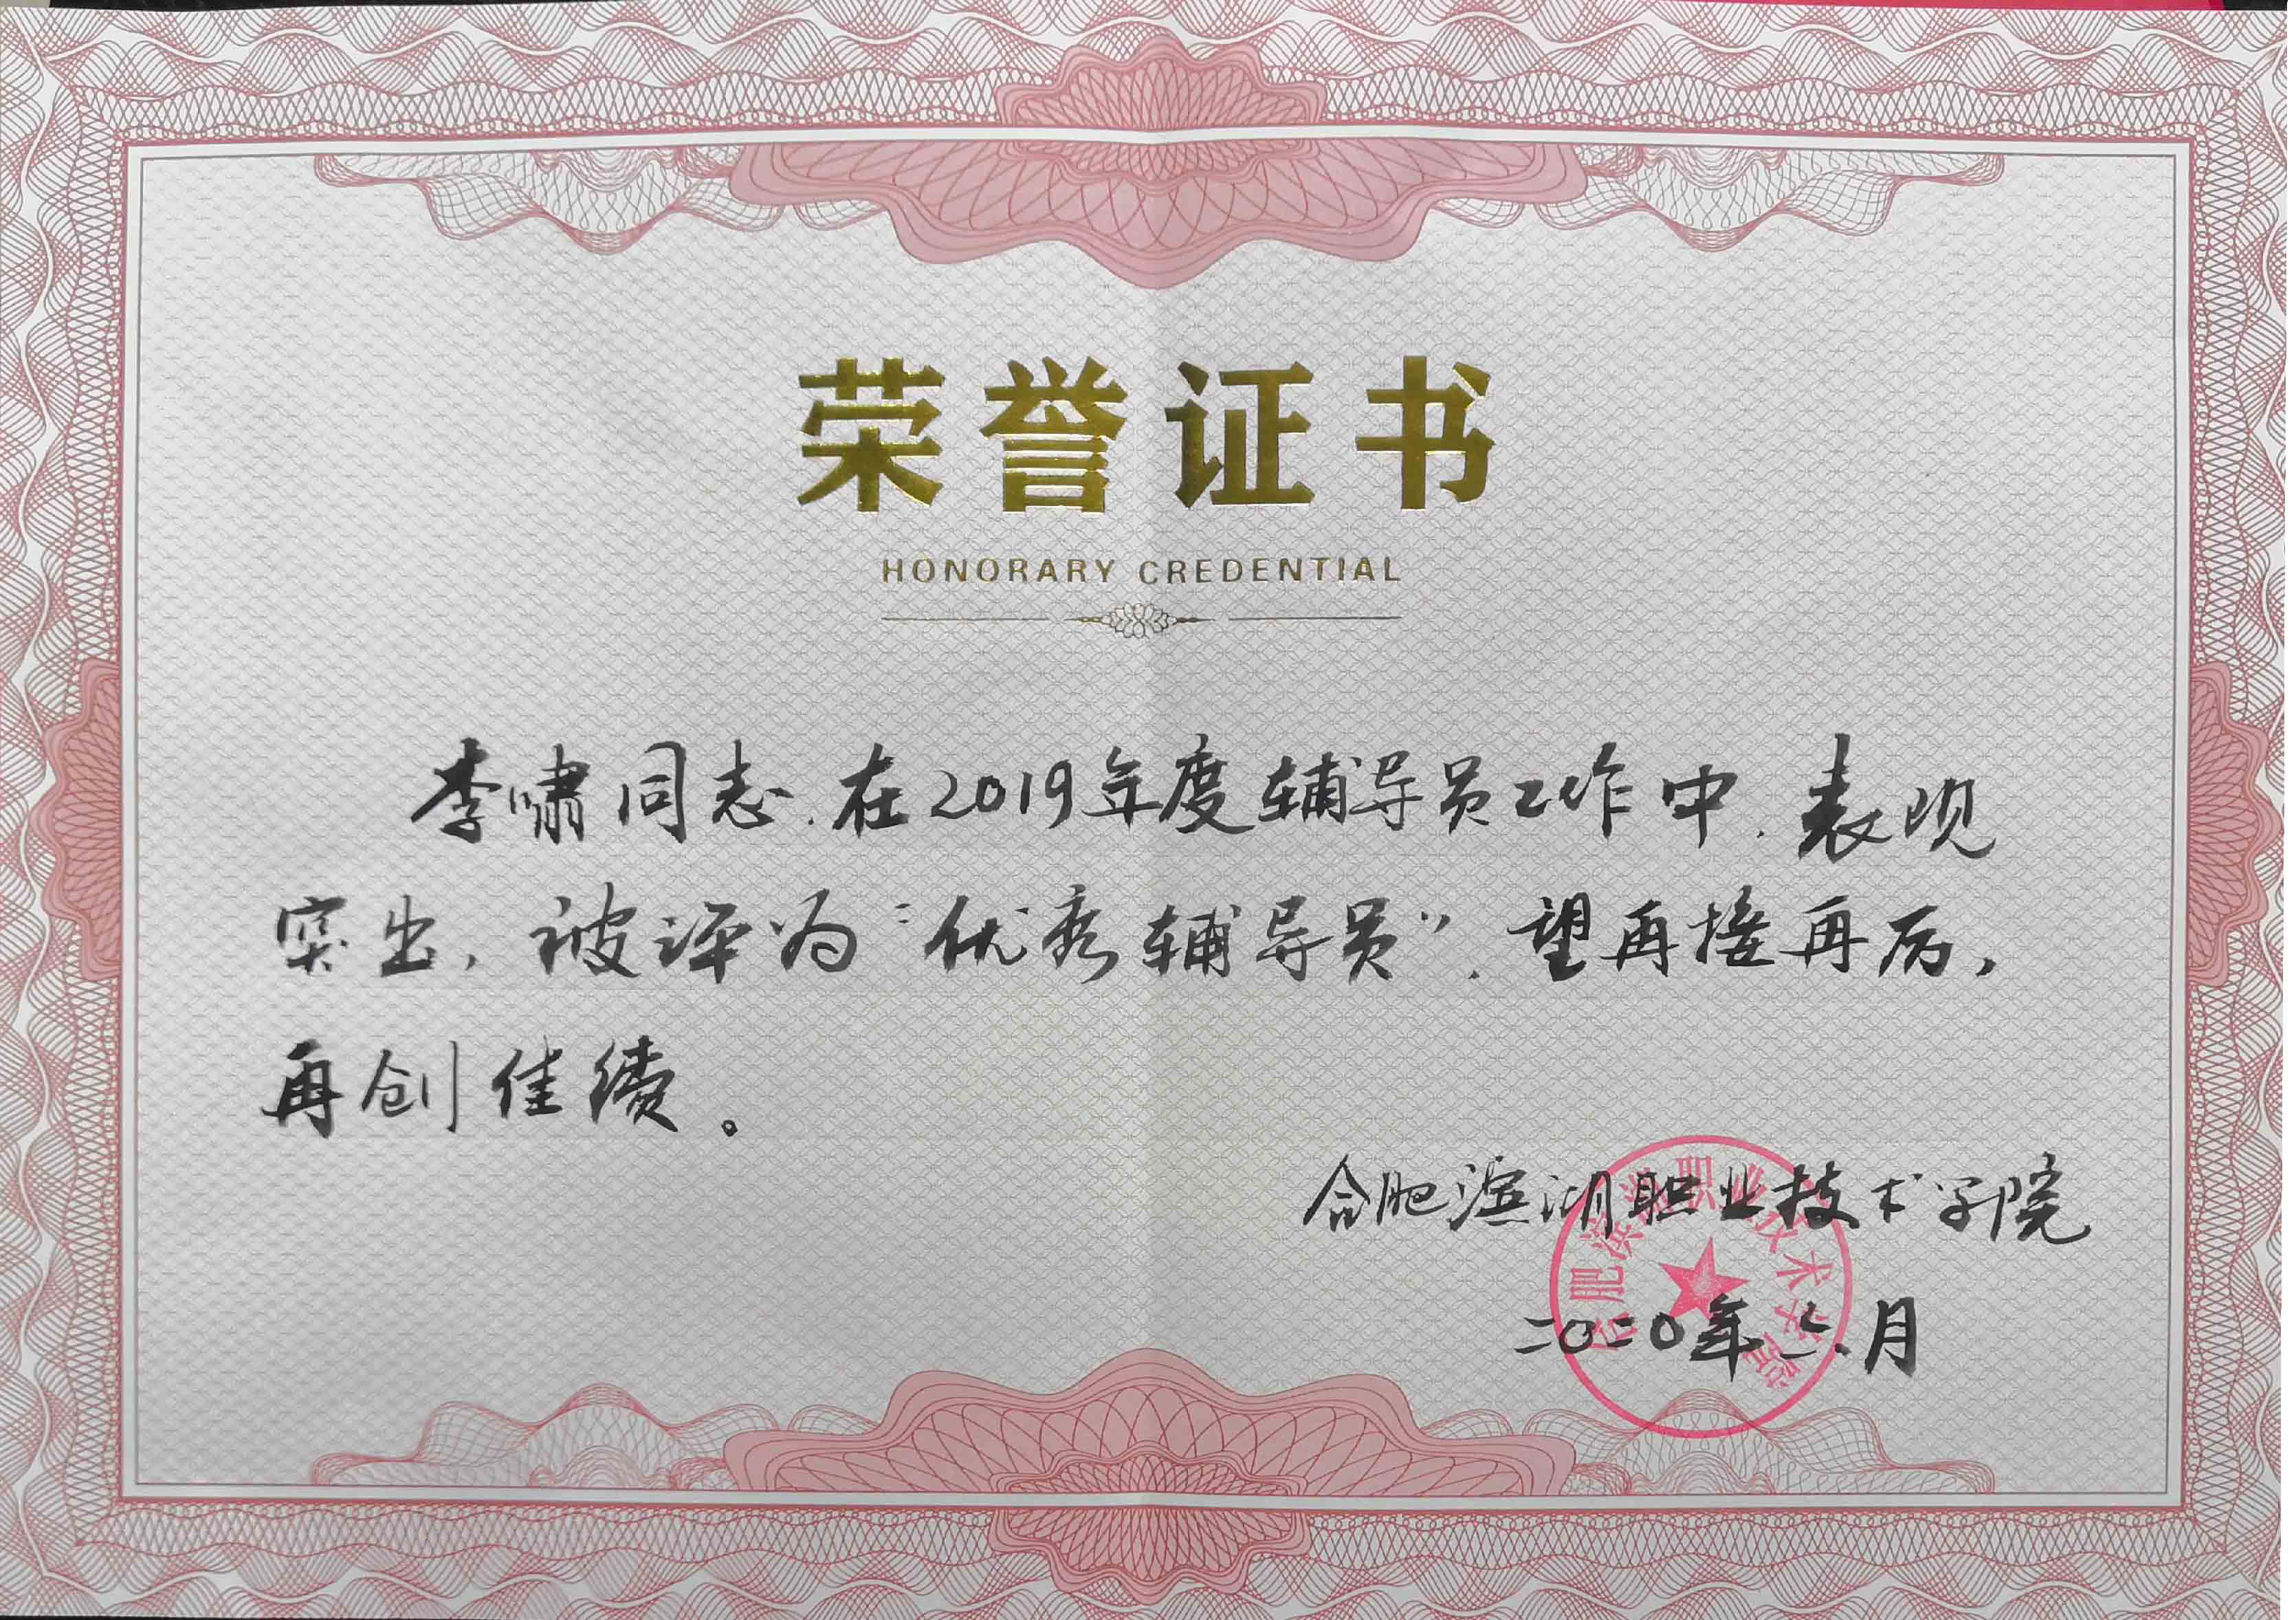 荣誉证书
HONORARY CREDENTIAL
李啸同志.在2019年度辅导员工作中.表现
突出,被评为"优秀辅导员".望再接再厉,
再创佳绩。
合肥滨湖职业技术学院
合肥滨湖职业技术学院
二〇二〇年六月